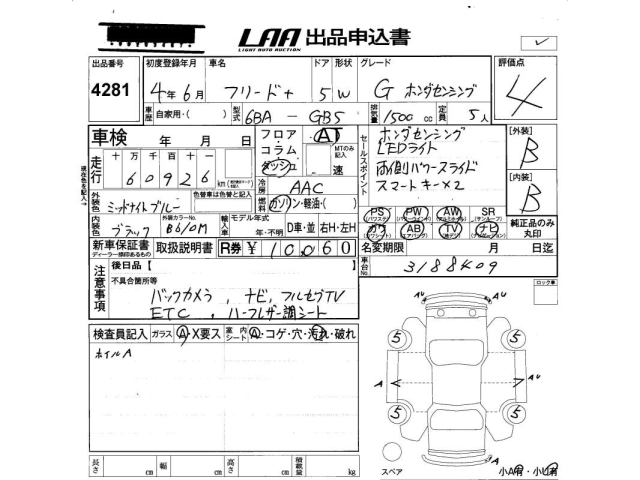 LAA 出品申込書
LIGHT AUTO AUCTION
出品番号 4281
初度登録年月 4年6月
車名 フリード+
ドア 形状 5W
グレード G ホンダセンシング
評価点 4
車歴 自家用・( )
型式 6BA - GB5
排気量 1500 cc
定員 5人
車検 年 月 日
フロア・コラム・ダッシュ
AT
MTのみ記入
速
セールスポイント
ホンダセンシング
LEDライト
両側パワースライド
スマートキー×2
[外装] B
[内装] B
走行 十万千百十
60926 km
冷房 AAC
外装色 ミッドナイトブルー
色替車は色替と記入
燃料 ガソリン・軽油・( )
内装色 ブラック
外装カラーNo. B610M
輸入車 モデル年式 年・不明
D車・並 右H・左H
PS PW AW SR(サンルーフ)
カワ AB TV ナビ
純正品のみ丸印
新車保証書 取扱説明書
ディーラー捺印あるもの
R券 ¥10060
名変期限 月 日迄
車台No. 3188409
注意事項
後日品【 】
不具合箇所等
バックカメラ, ナビ, フルセグTV
ETC, ハーフレザー調シート
ロック車
検査員記入 ガラス A・X要ス
室内シート A・コゲ・穴・汚れ・破れ
ホイルA
AU
5 5
A A AU
5 5
A
スペア
小A有・小U有
長さ cm 幅 cm 高さ cm 積載量 kg